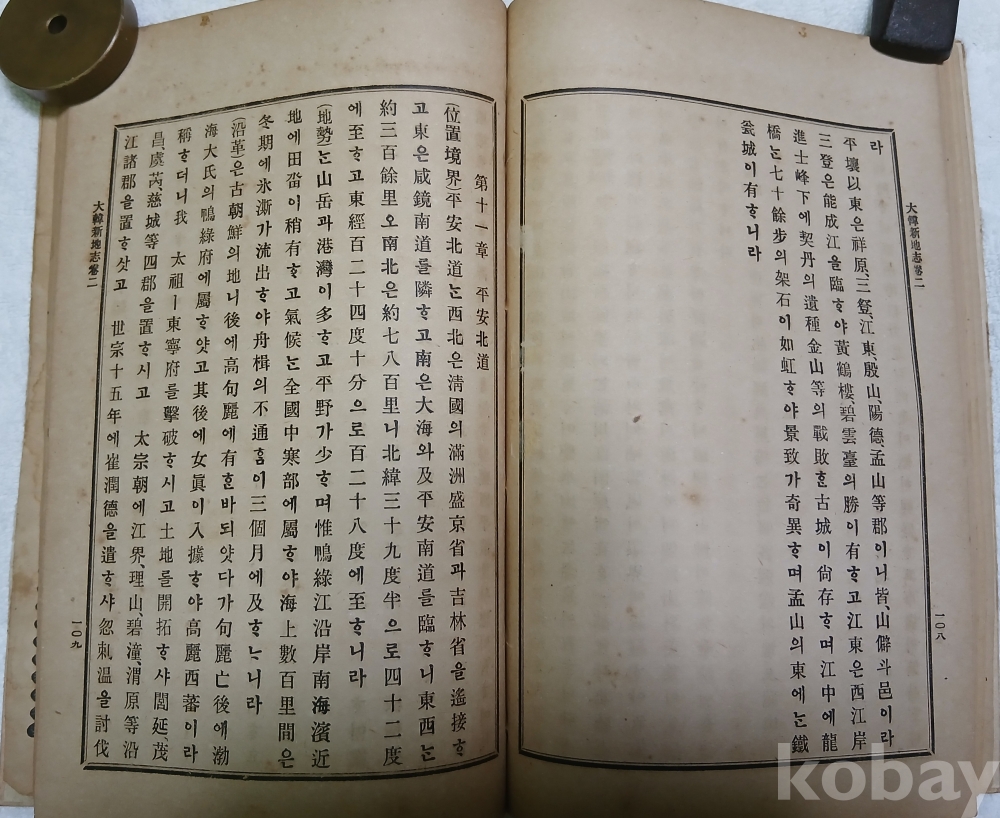 大韓新地志卷二
一〇八
라
平壤以東은祥原、三登、江東、殷山、陽德、孟山等郡이니皆、山僻ᄒᆞᆫ邑이라
三登은能成江을臨ᄒᆞ야黃鶴樓、碧雲臺의勝이有ᄒᆞ고江東은西江岸
進士峰下에契丹의遺種金山等의戰敗ᄒᆞᆫ古城이尙存ᄒᆞ며江中에龍
橋ᄂᆞᆫ七十餘步의架石이如虹ᄒᆞ야景致가奇異ᄒᆞ며孟山의東에ᄂᆞᆫ鐵
瓮城이有ᄒᆞ니라
第十一章 平安北道
(位置境界)平安北道ᄂᆞᆫ西北은淸國의滿洲盛京省과吉林省을遙接ᄒᆞ
고東은咸鏡南道를隣ᄒᆞ고南은大海와及平安南道를臨ᄒᆞ니東西ᄂᆞᆫ
約三百餘里오南北은約七八百里니北緯三十九度半으로四十二度
에至ᄒᆞ고東經百二十四度十分으로百二十八度에至ᄒᆞ니라
(地勢)ᄂᆞᆫ山岳과港灣이多ᄒᆞ고平野가少ᄒᆞ며惟鴨綠江沿岸南海濱近
地에田畓이稍有ᄒᆞ고氣候ᄂᆞᆫ全國中寒部에屬ᄒᆞ야海上數百里間은
冬期에氷澌가流出ᄒᆞ야舟楫의不通홈이三個月에及ᄒᆞᄂᆞ니라
(沿革)은古朝鮮의地니後에高句麗에有ᄒᆞᆫ바되얏다가句麗亡後에渤
海大氏의鴨綠府에屬ᄒᆞ얏고其後에女眞이入據ᄒᆞ야高麗西蕃이라
稱ᄒᆞ더니我 太祖ㅣ東寧府를擊破ᄒᆞ시고土地를開拓ᄒᆞ샤閭延、茂
昌、虞芮、慈城等四郡을置ᄒᆞ시고 太宗朝에江界、理山、碧潼、渭原等沿
江諸郡을置ᄒᆞ삿고 世宗十五年에崔潤德을遣ᄒᆞ샤忽剌溫을討伐
大韓新地志卷二
一〇九
kobay